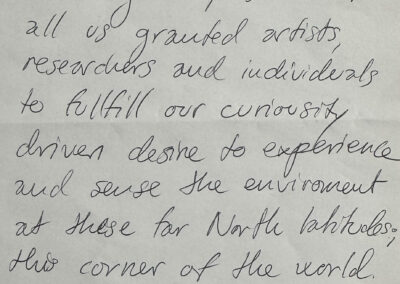 all us granted artists,
researchers and individuals
to fullfill our curiousity
driven desire to experience
and sense the enviroment
at these far North latitudes;
this corner of the world.